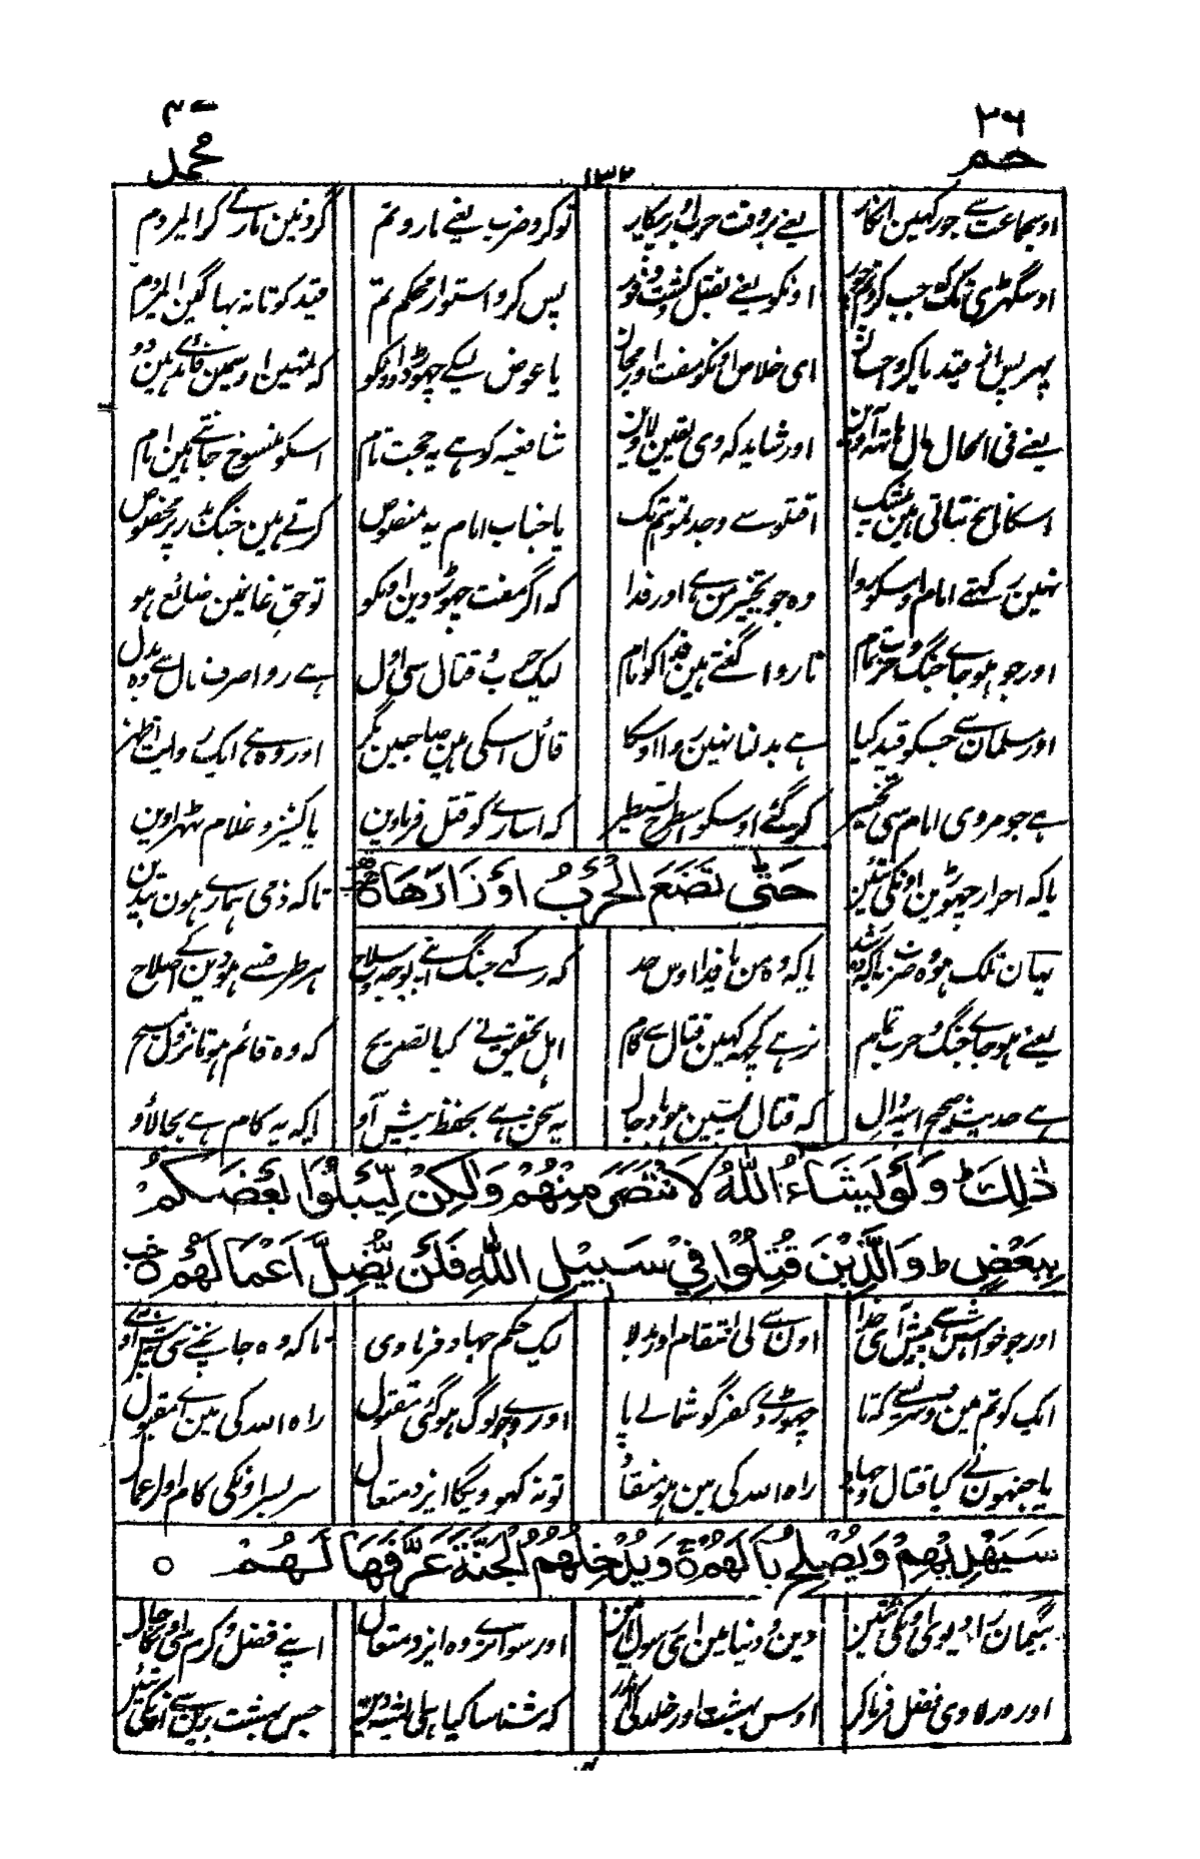 ٣٦ محمد ٤٧
حم ١٣٢
اوس جماعت سے جو رکہین انکار یعنے بروقت حرب اور پیکار تو کرو ضرب یعنے مارو تم گردنین مارے کر المردم
اوس گھڑی تک کہ جب کرو تم چور اونکو یعنے بقتل کشت وفور پس کرو استوار محکم تم قید کو تا نہ بہاگین المردم
پہر پس انکے قید یا کرو احسان ای خلاص اونکو مفت اور مجان یا عوض لیکے چہوڑ دو اونکو کہ تہین اوسمین فائدے ہین دو
یعنے فی الحال مال ہاتھ آوین اور شاید کہ وی یقین لاوین شافعیہ کو ہے یہ حجت تام اسکو منسوخ جانتے ہین امام
اسکا ناسخ بتاتی ہین بیشک اقتلوا سے وجدتموہم تک یا جناب امام یہ منصوص کرتے ہین جنگ بدر پر مخصوص
نہین رکہتے امام اوسکو روا وہ جو تخییر من ہے اور فدا کہ اگر مفت چہوڑ دین اونکو تو حق غانمین ضائع ہو
اور جو ہو جاے جنگ و حرب تمام ناروا گنتے ہین فدا کو امام لیک جب ہو قتال سی اول ہے روا صرف مال سے وہ بدل
اور سلمان سے جسکو قید کیا ہے بدلنا نہین روا اوسکا قائل اسکی ہین صاحبین مگر اور وہ ہے ایک روایت اظہر
ہے جو مروی امام سی تخییر کر گئے اوسکو اسطرح تسطیر کہ اسارے کو قتل فرماوین یا کنیز و غلام ٹھہراوین
یا کہ احرار چہوڑین اونکی تئین تاکہ ذمی ہمارے ہون بیدین
حَتّٰى تَضَعَ الْحَرْبُ اَوْزَارَهَا
یہان تلک ہو وہ ضرب یا کہ وہ شد یا کہ وہ من یا فدا اوس حد کہ رکہے جنگ اپنے بوجہ و سلاح ہر طرف سے ہو دین کے اصلاح
یعنے ہو جاے جنگ و حرب تمام نرہے کچہ کہین قتال سے کام اہل تحقیق نے کیا تصریح کہ وہ قائم ہو تا نزول مسیح
ہے حدیث صحیح اسپر دال کہ قتال پسین ہو با دجال یہ سخن ہے بحفظ پیش آؤ یا کہ یہ کام ہے بجا لاؤ
ذٰلِكَ ط وَلَوْ يَشَآءُ اللّٰهُ لَانْتَصَرَ مِنْهُمْ وَلٰكِنْ لِّيَبْلُوَا بَعْضَكُمْ
بِبَعْضٍ ط وَالَّذِيْنَ قُتِلُوْا فِيْ سَبِيْلِ اللّٰهِ فَلَنْ يُّضِلَّ اَعْمَالَهُمْ ۝
اور جو خواہش سے پیش آی خدا اون سے لی انتقام اور بدلا لیک حکم جہاد فرماوی تاکہ وہ جانچنے سی پیش آوے
ایک کو تم مین دوسرے کے تا چہوڑ دے کفر گوشمالے پا اور وے جو لوگ ہو گئی مقتول راہ اللہ کی مین سے مقبول
یا جنہون نے کیا قتال و جہاد راہ اللہ کی مین ہو منقاد تو نہ کہو ویگا ایزد متعال سر بسر اونکی کام اور اعمال
سَيَهْدِيْهِمْ وَيُصْلِحُ بَالَهُمْ ۝ وَيُدْخِلُهُمُ الْجَنَّةَ عَرَّفَهَا لَهُمْ ۝
بیگمان راہ دیوی اونکی تئین دین و دنیا مین ای رسول امین اور سوارے وہ ایزد متعال اپنے فضل و کرم سی اونکا حال
اور در لاوی فضل فرما کر اوس بہشت اور خلد کی اندر کہ شناسا کیا ہی جس بہشت برین سے اونکی تئین